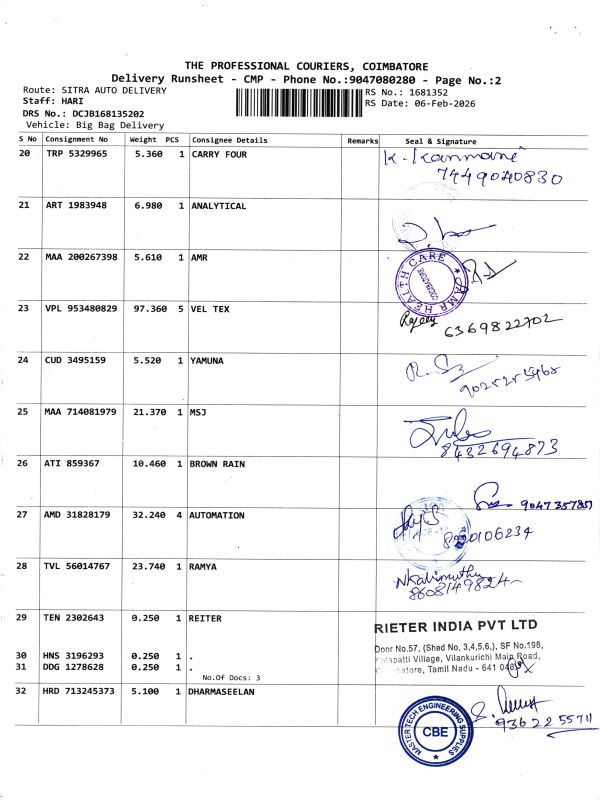 THE PROFESSIONAL COURIERS, COIMBATORE
Delivery Runsheet - CMP - Phone No.:9047080280 - Page No.:2
Route: SITRA AUTO DELIVERY
RS No.: 1681352
Staff: HARI
RS Date: 06-Feb-2026
DRS No.: DCJB168135202
Vehicle: Big Bag Delivery
S No Consignment No Weight PCS Consignee Details Remarks Seal & Signature
20 TRP 5329965 5.360 1 CARRY FOUR
7449040830
21 ART 1983948 6.980 1 ANALYTICAL
22 MAA 200267398 5.610 1 AMR
AMR HEALTH CARE
COIMBATORE
23 VPL 953480829 97.360 5 VEL TEX
6369822702
24 CUD 3495159 5.520 1 YAMUNA
25 MAA 714081979 21.370 1 MSJ
8432694873
26 ATI 859367 10.460 1 BROWN RAIN
27 AMD 31828179 32.240 4 AUTOMATION
28 TVL 56014767 23.740 1 RAMYA
8608149824
29 TEN 2302643 0.250 1 REITER
RIETER INDIA PVT LTD
Door No.57, (Shed No, 3,4,5,6,), SF No.198,
Kalapatti Village, Vilankurichi Main Road,
Coimbatore, Tamil Nadu - 641
30 HNS 3196293 0.250 1 .
31 DDG 1278628 0.250 1 .
No.Of Docs: 3
32 HRD 713245373 5.100 1 DHARMASEELAN
MASTERTECH ENGINEERING SUPPLIES
CBE